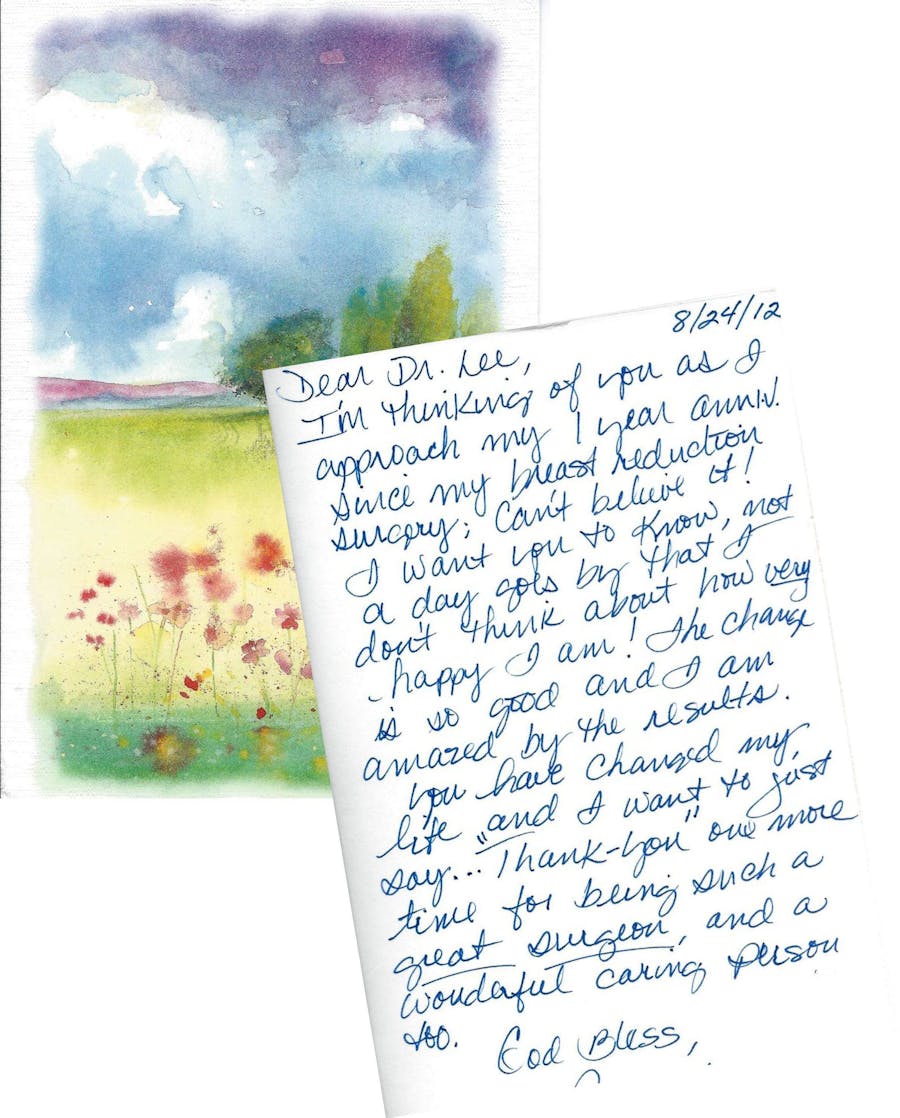 8/24/12
Dear Dr. Lee,
I'm thinking of you as I
approach my 1 year anniv.
since my breast reduction
surgery; Can't believe it!
I want you to know, not
a day goes by that I
don't think about how very
happy I am! The change
is so good and I am
amazed by the results.
You have changed my
life and I want to just
say... "Thank-you" one more
time for being such a
great surgeon, and a
wonderful caring person
too.
God Bless,